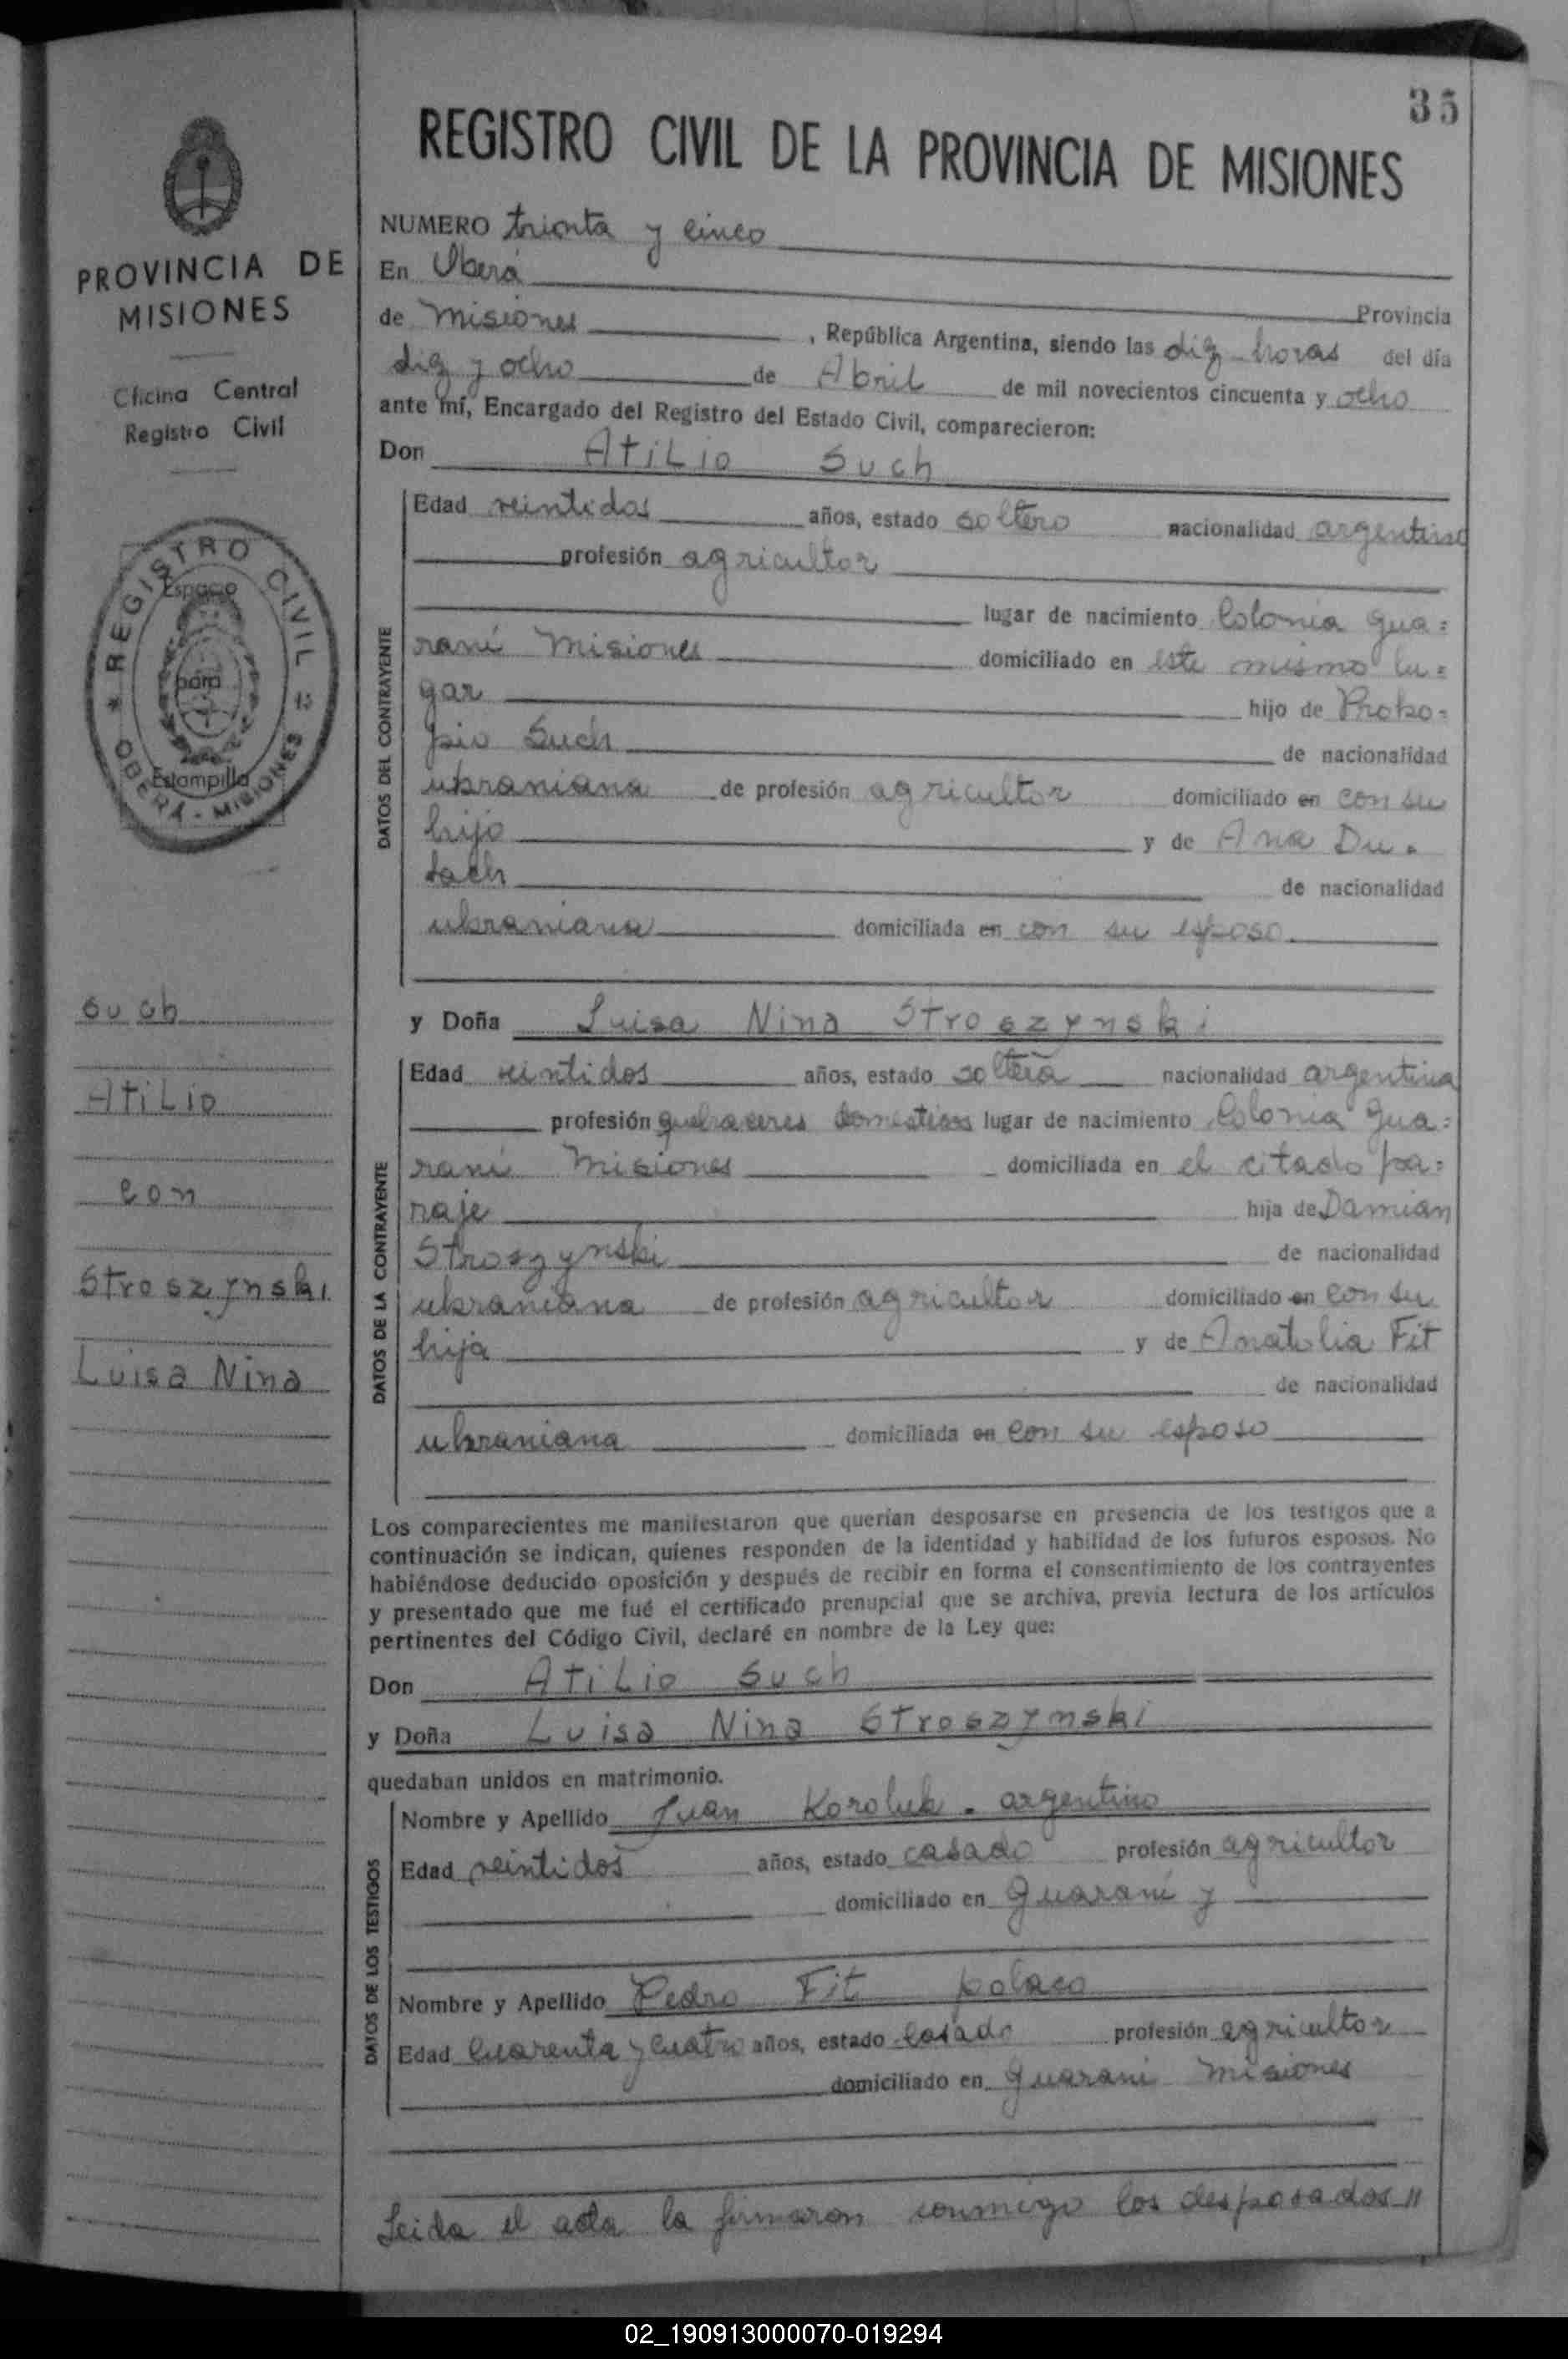 35
REGISTRO CIVIL DE LA PROVINCIA DE MISIONES
PROVINCIA DE
MISIONES
Oficina Central
Registro Civil
REGISTRO CIVIL
OBERA - MISIONES
Espacio
para
Estampilla
Such
Atilio
con
Stroszynski
Luisa Nina
NUMERO trienta y cinco
En Oberá
Provincia
de Misiones , República Argentina, siendo las diez horas del día
diez y ocho de Abril de mil novecientos cincuenta y ocho
ante mí, Encargado del Registro del Estado Civil, comparecieron:
Don Atilio Such
DATOS DEL CONTRAYENTE
Edad veintidos años, estado soltero nacionalidad argentino
profesión agricultor
lugar de nacimiento Colonia Gua=
raní Misiones domiciliado en este mismo lu=
gar hijo de Proko=
pio Such de nacionalidad
ukraniana de profesión agricultor domiciliado en con su
hijo y de Ana Du=
de nacionalidad
ukraniana domiciliada en con su esposo
y Doña Luisa Nina Stroszynski
DATOS DE LA CONTRAYENTE
Edad veintidos años, estado soltera nacionalidad argentina
profesión quehaceres domesticos lugar de nacimiento Colonia Gua=
raní Misiones domiciliada en el citado pa=
raje hija de Damian
Stroszynski de nacionalidad
ukraniana de profesión agricultor domiciliado en con su
hija y de Anatolia Fit
de nacionalidad
ukraniana domiciliada en con su esposo
Los comparecientes me manifestaron que querían desposarse en presencia de los testigos que a
continuación se indican, quienes responden de la identidad y habilidad de los futuros esposos. No
habiéndose deducido oposición y después de recibir en forma el consentimiento de los contrayentes
y presentado que me fué el certificado prenupcial que se archiva, previa lectura de los artículos
pertinentes del Código Civil, declaré en nombre de la Ley que:
Don Atilio Such
y Doña Luisa Nina Stroszynski
quedaban unidos en matrimonio.
DATOS DE LOS TESTIGOS
Nombre y Apellido Juan Koroluk - argentino
Edad veintidos años, estado casado profesión agricultor
domiciliado en Guaraní y
Nombre y Apellido Pedro Fit polaco
Edad cuarenta y cuatro años, estado casado profesión agricultor
domiciliado en Guaraní Misiones
Leida el acta la firmaron conmigo los desposados "
02_190913000070-019294